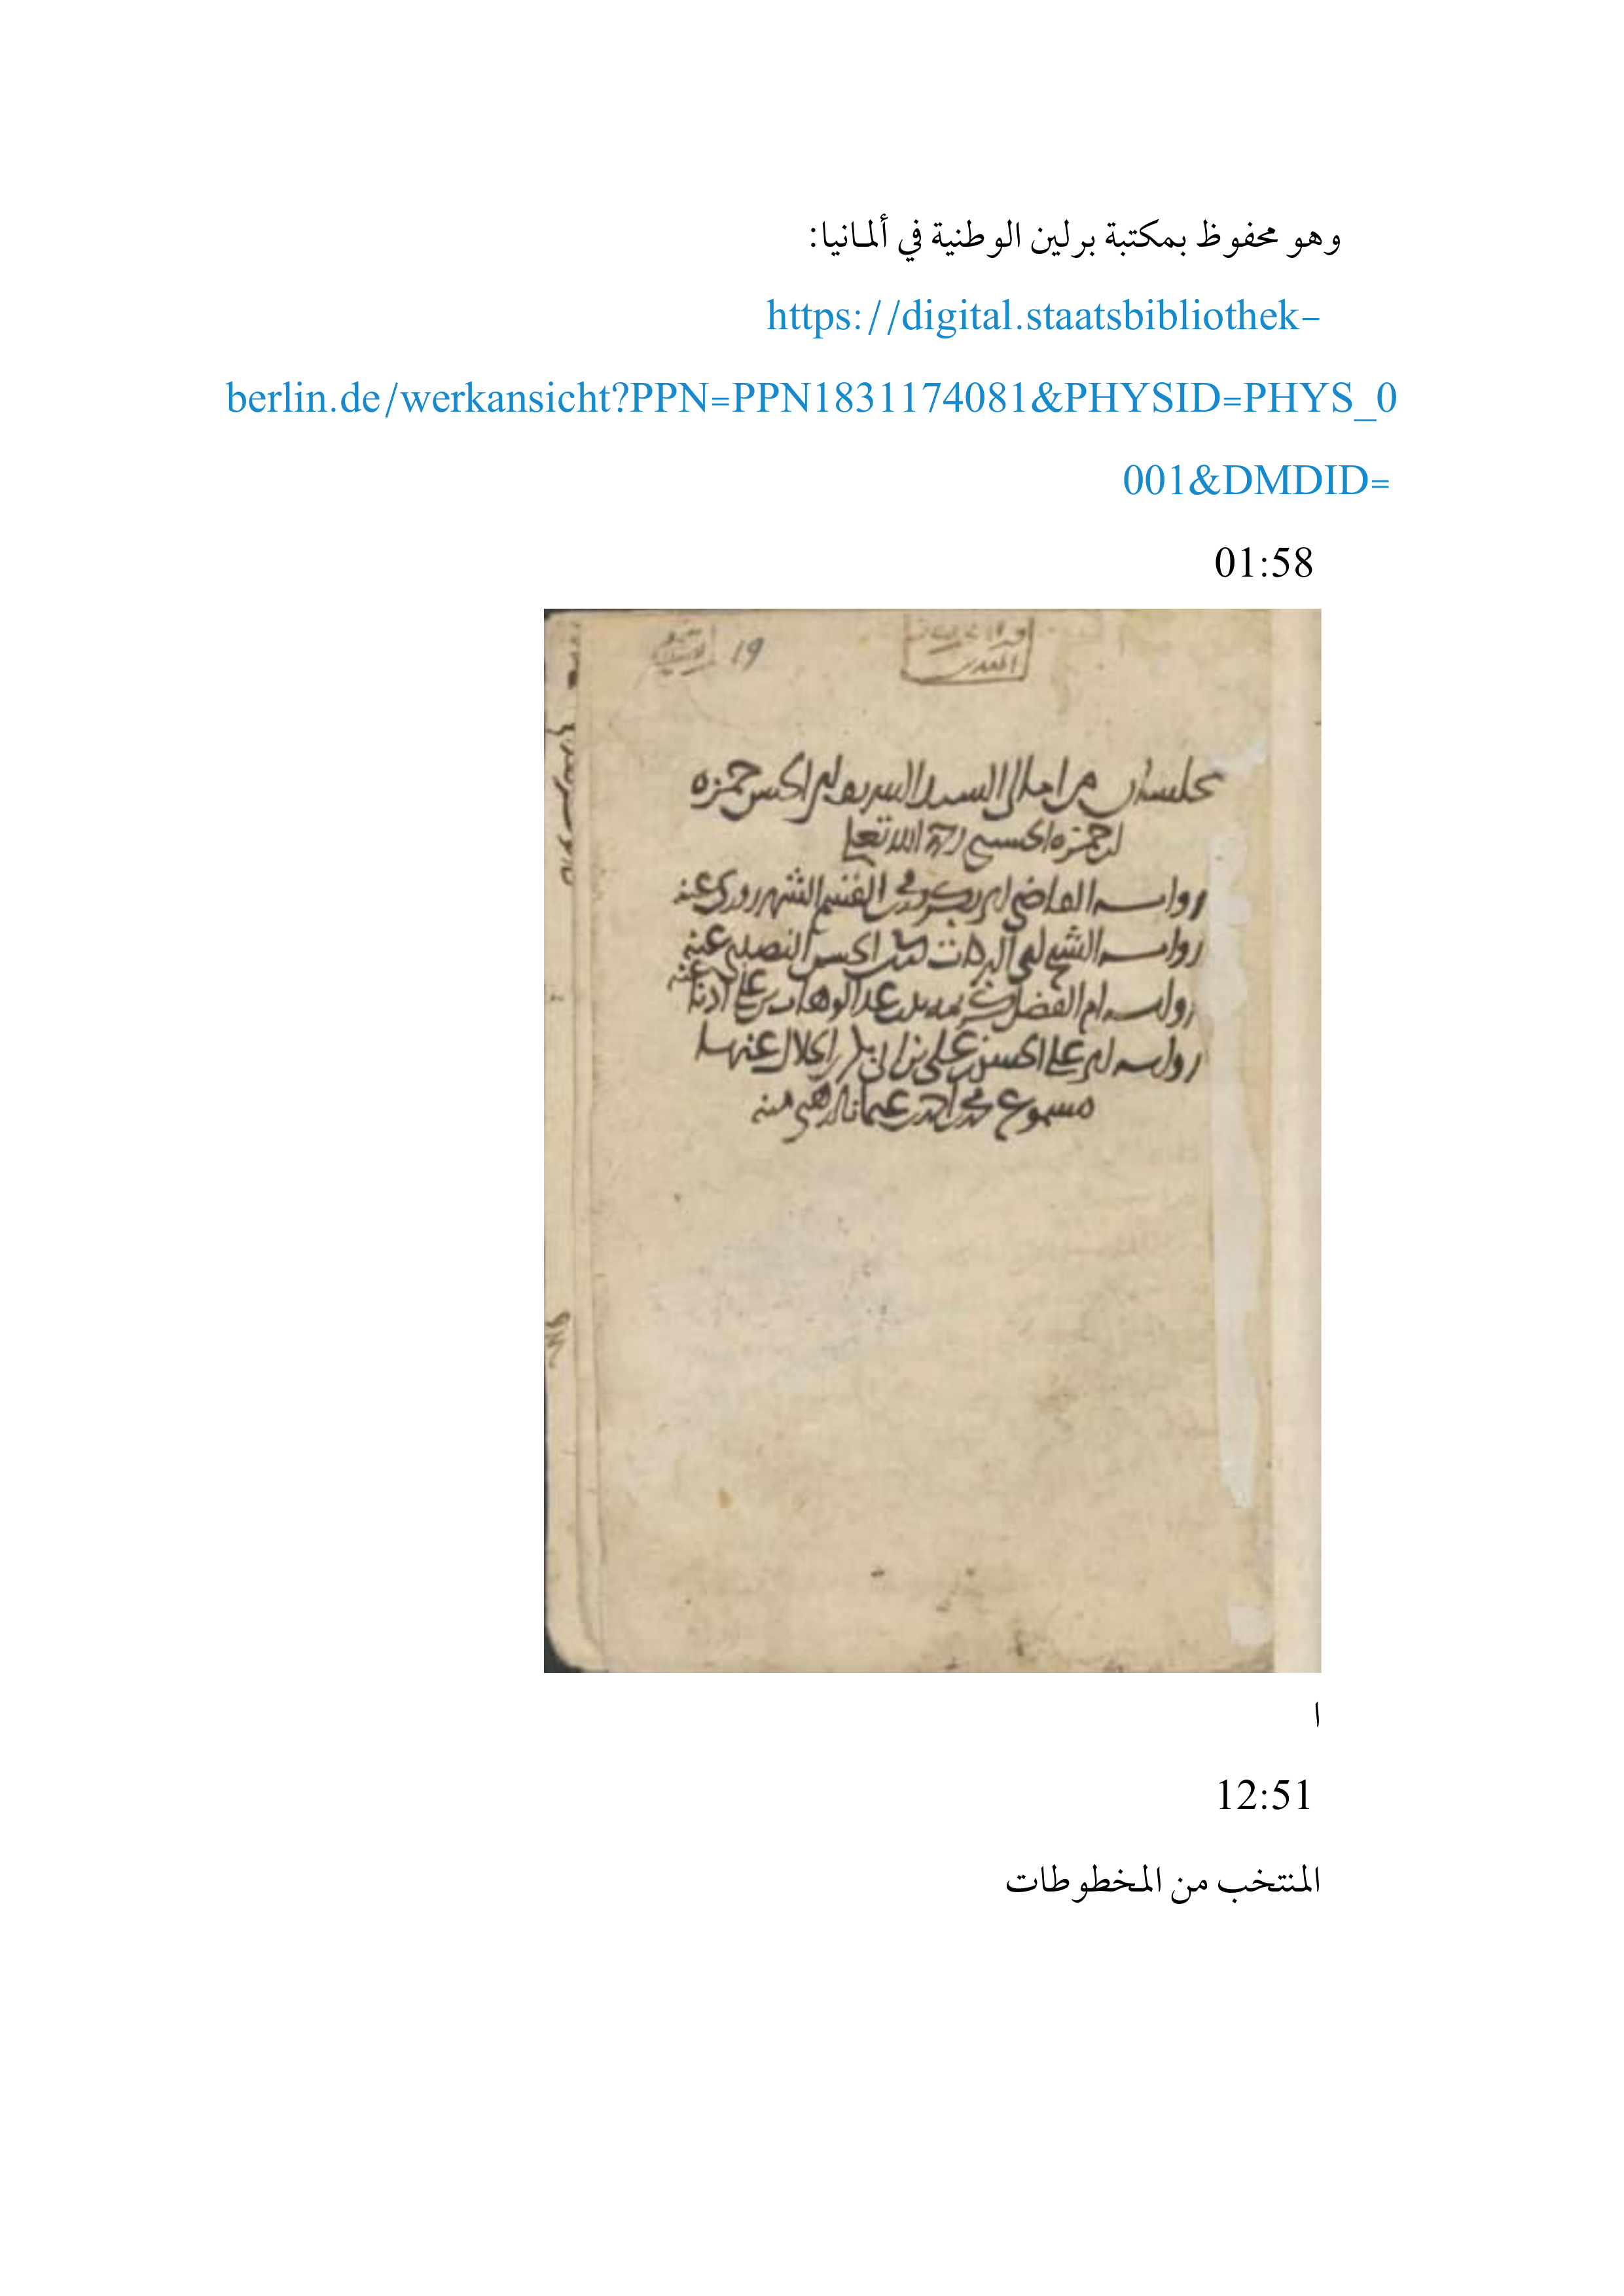 وهو محفوظ بمكتبة برلين الوطنية في ألمانيا:
https://digital.staatsbibliothek-
berlin.de/werkansicht?PPN=PPN1831174081&PHYSID=PHYS_0
001&DMDID=
01:58
19
مجلسان من امالي السيد الشريف ابي الحسن حمزه
الحسيني رحمه الله تعلى
روايه القاضي ابي بكر محمد بن القسم الشهرزوري عنه
روايه الشيخ ابي البركات الحسن عنه
روايه ام الفضل كريمه بنت عبد الوهاب بن علي اذنا عنه
روايه ابي علي الحسن بن علي بن ابي بكر الخلال عنها
مسموع محمد بن احمد بن عثمان الذهبي منه
ا
12:51
المنتخب من المخطوطات